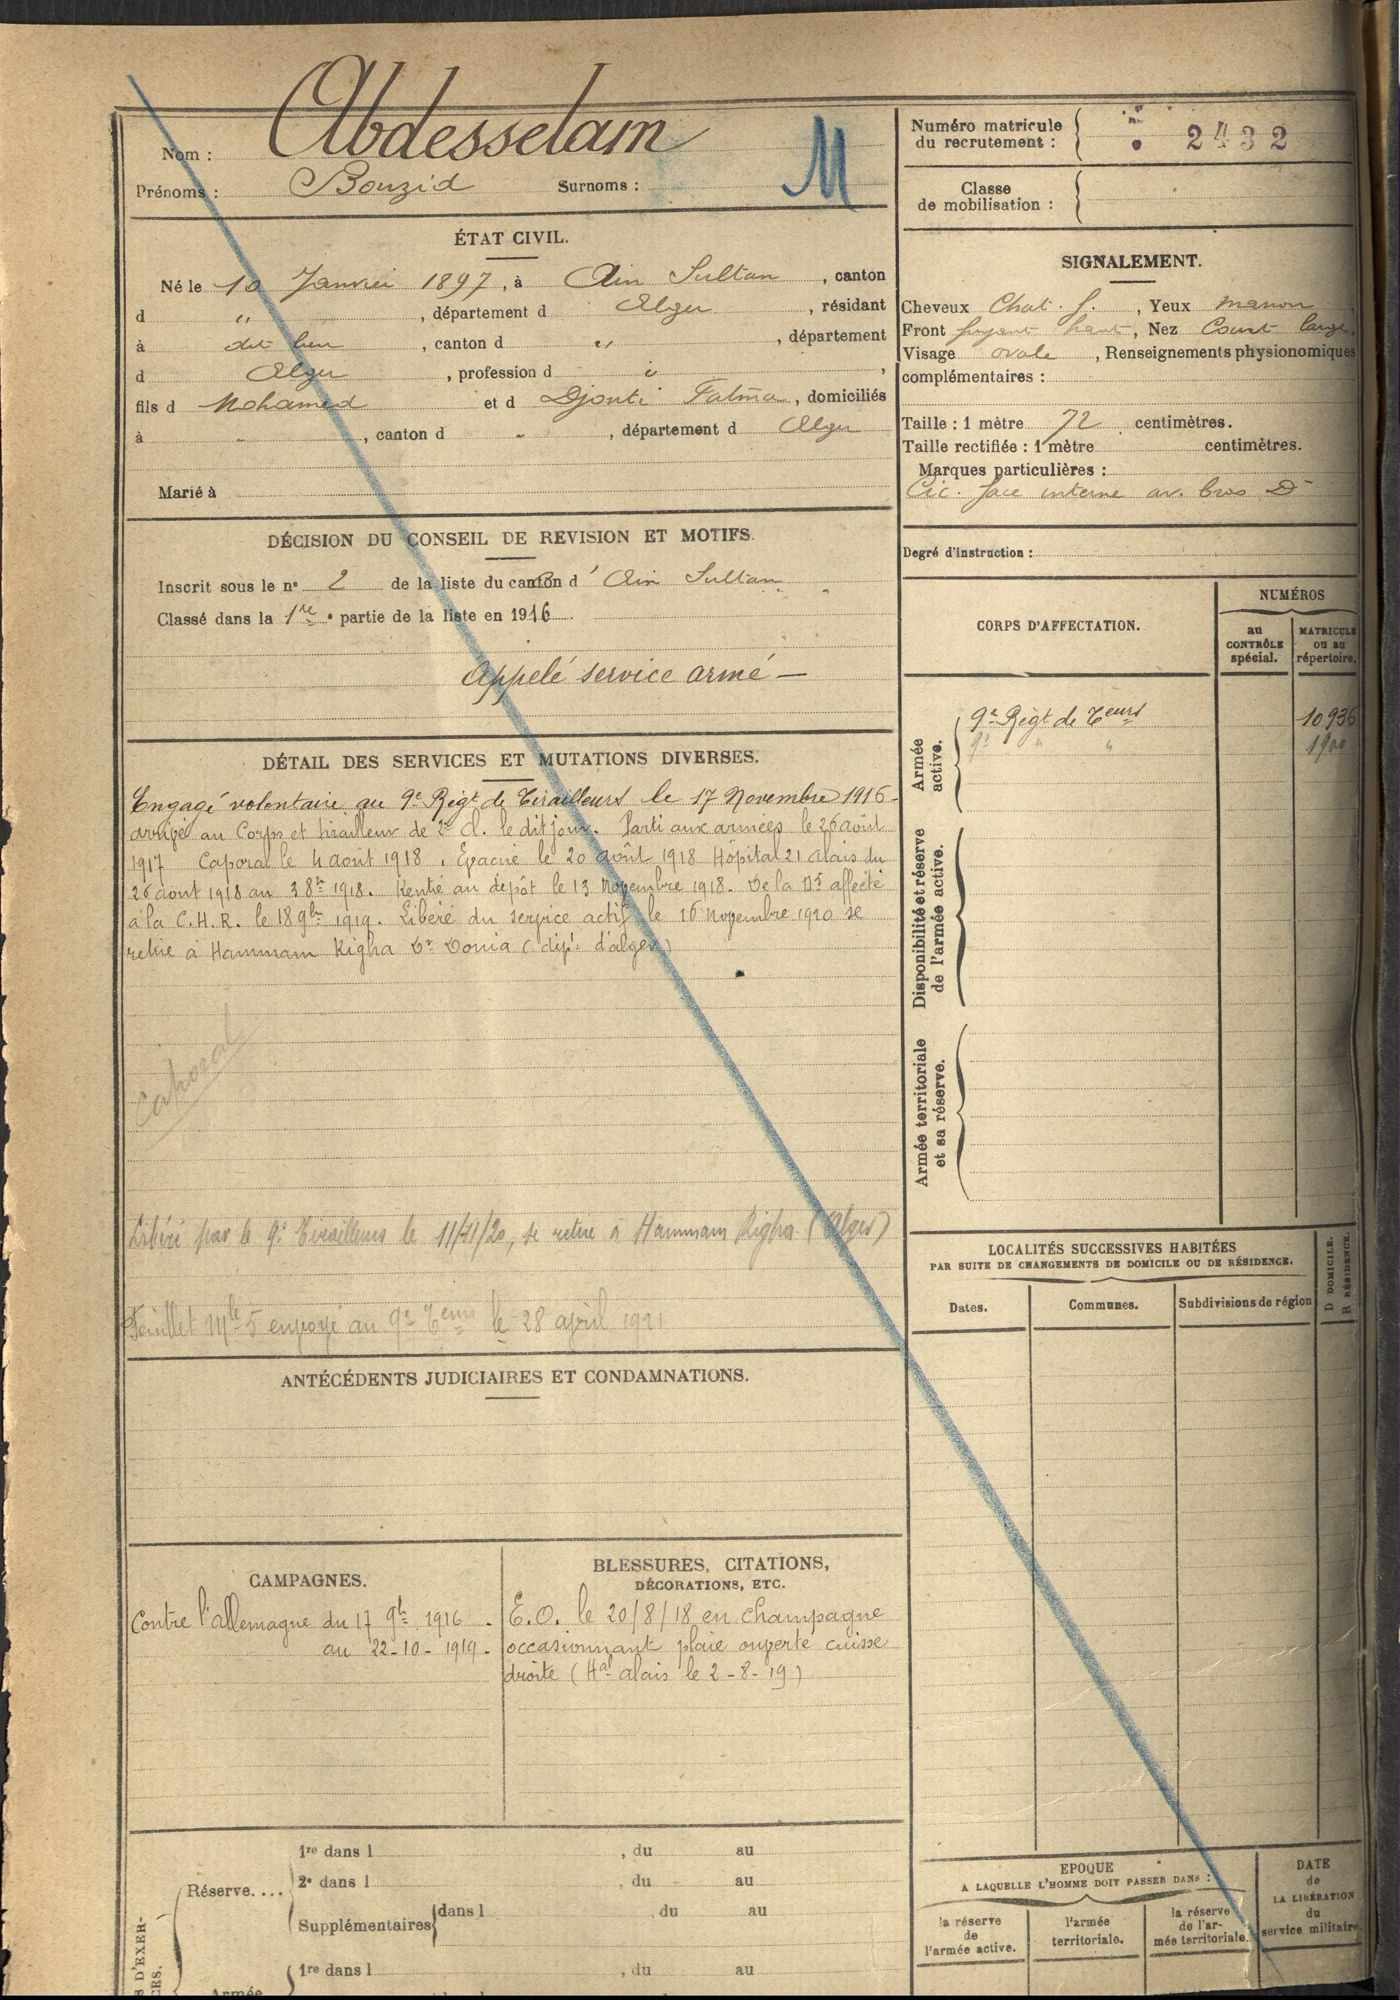 Nom : Abdesselam
Prénoms : Bouzid Surnoms :
M
ÉTAT CIVIL.
Né le 10 Janvier 1897, à Ain Sultan, canton
d " , département d Alger, résidant
à dit lieu, canton d " , département
d Alger, profession d " ,
fils d Mohamed et d Djouti Fatma, domiciliés
à " , canton d " , département d Alger
Marié à
DÉCISION DU CONSEIL DE REVISION ET MOTIFS.
Inscrit sous le n° 2 de la liste du canton d' Ain Sultan
Classé dans la 1re partie de la liste en 1916
Appelé service armé —
DÉTAIL DES SERVICES ET MUTATIONS DIVERSES.
Engagé volontaire au 9e Régt de Tirailleurs le 17 Novembre 1916 -
arrivé au Corps et tirailleur de 2e Cl. le dit jour. Parti aux armées le 26 août
1917 Caporal le 4 août 1918. Evacué le 20 août 1918 Hôpital 21 Alais du
26 août 1918 au 3 8bre 1918. Rentré au dépôt le 13 Novembre 1918. De la affecté
à la C.H.R. le 18 9bre 1919. Libéré du service actif le 16 Novembre 1920 se
retire à Hammam Righa Dr Donia (dépt. d'alger)
Caporal
Libéré par le 9e Tirailleurs le 11/11/20, se retire à Hammam Righa (Alger)
Feuillet Mle 5 envoyé au 9e Teurs le 28 april 1921
ANTÉCÉDENTS JUDICIAIRES ET CONDAMNATIONS.
CAMPAGNES.
Contre l'allemagne du 17 9bre 1916 -
au 22-10-1919 -
BLESSURES, CITATIONS,
DÉCORATIONS, ETC.
E.O. le 20/8/18 en Champagne
occasionnant plaie ouverte cuisse
droite (Hal alais le 2-8-19)
Réserve....
1re dans l , du au
2e dans l , du au
Supplémentaires dans l du au
1re dans l , du au
Armée
S D'EXER-
CES.
Numéro matricule
du recrutement : 2432
Classe
de mobilisation :
SIGNALEMENT.
Cheveux Chat. f. , Yeux marron
Front fuyant haut, Nez Court large,
Visage ovale, Renseignements physionomiques
complémentaires :
Taille : 1 mètre 72 centimètres.
Taille rectifiée : 1 mètre centimètres.
Marques particulières :
Cic. face interne av. bras Dt
Degré d'instruction :
CORPS D'AFFECTATION.
NUMÉROS
au
CONTRÔLE
spécial.
MATRICULE
ou au
répertoire.
Armée
active.
9e Régt de Teurs 10936
9e " " 1900
Disponibilité et réserve
de l'armée active.
Armée territoriale
et sa réserve.
LOCALITÉS SUCCESSIVES HABITÉES
PAR SUITE DE CHANGEMENTS DE DOMICILE OU DE RÉSIDENCE.
D DOMICILE.
R RÉSIDENCE.
Dates. Communes. Subdivisions de région
EPOQUE
A LAQUELLE L'HOMME DOIT PASSER DANS :
la réserve
de
l'armée active.
l'armée
territoriale.
la réserve
de l'ar-
mée territoriale.
DATE
de
LA LIBÉRATION
du
service militaire.